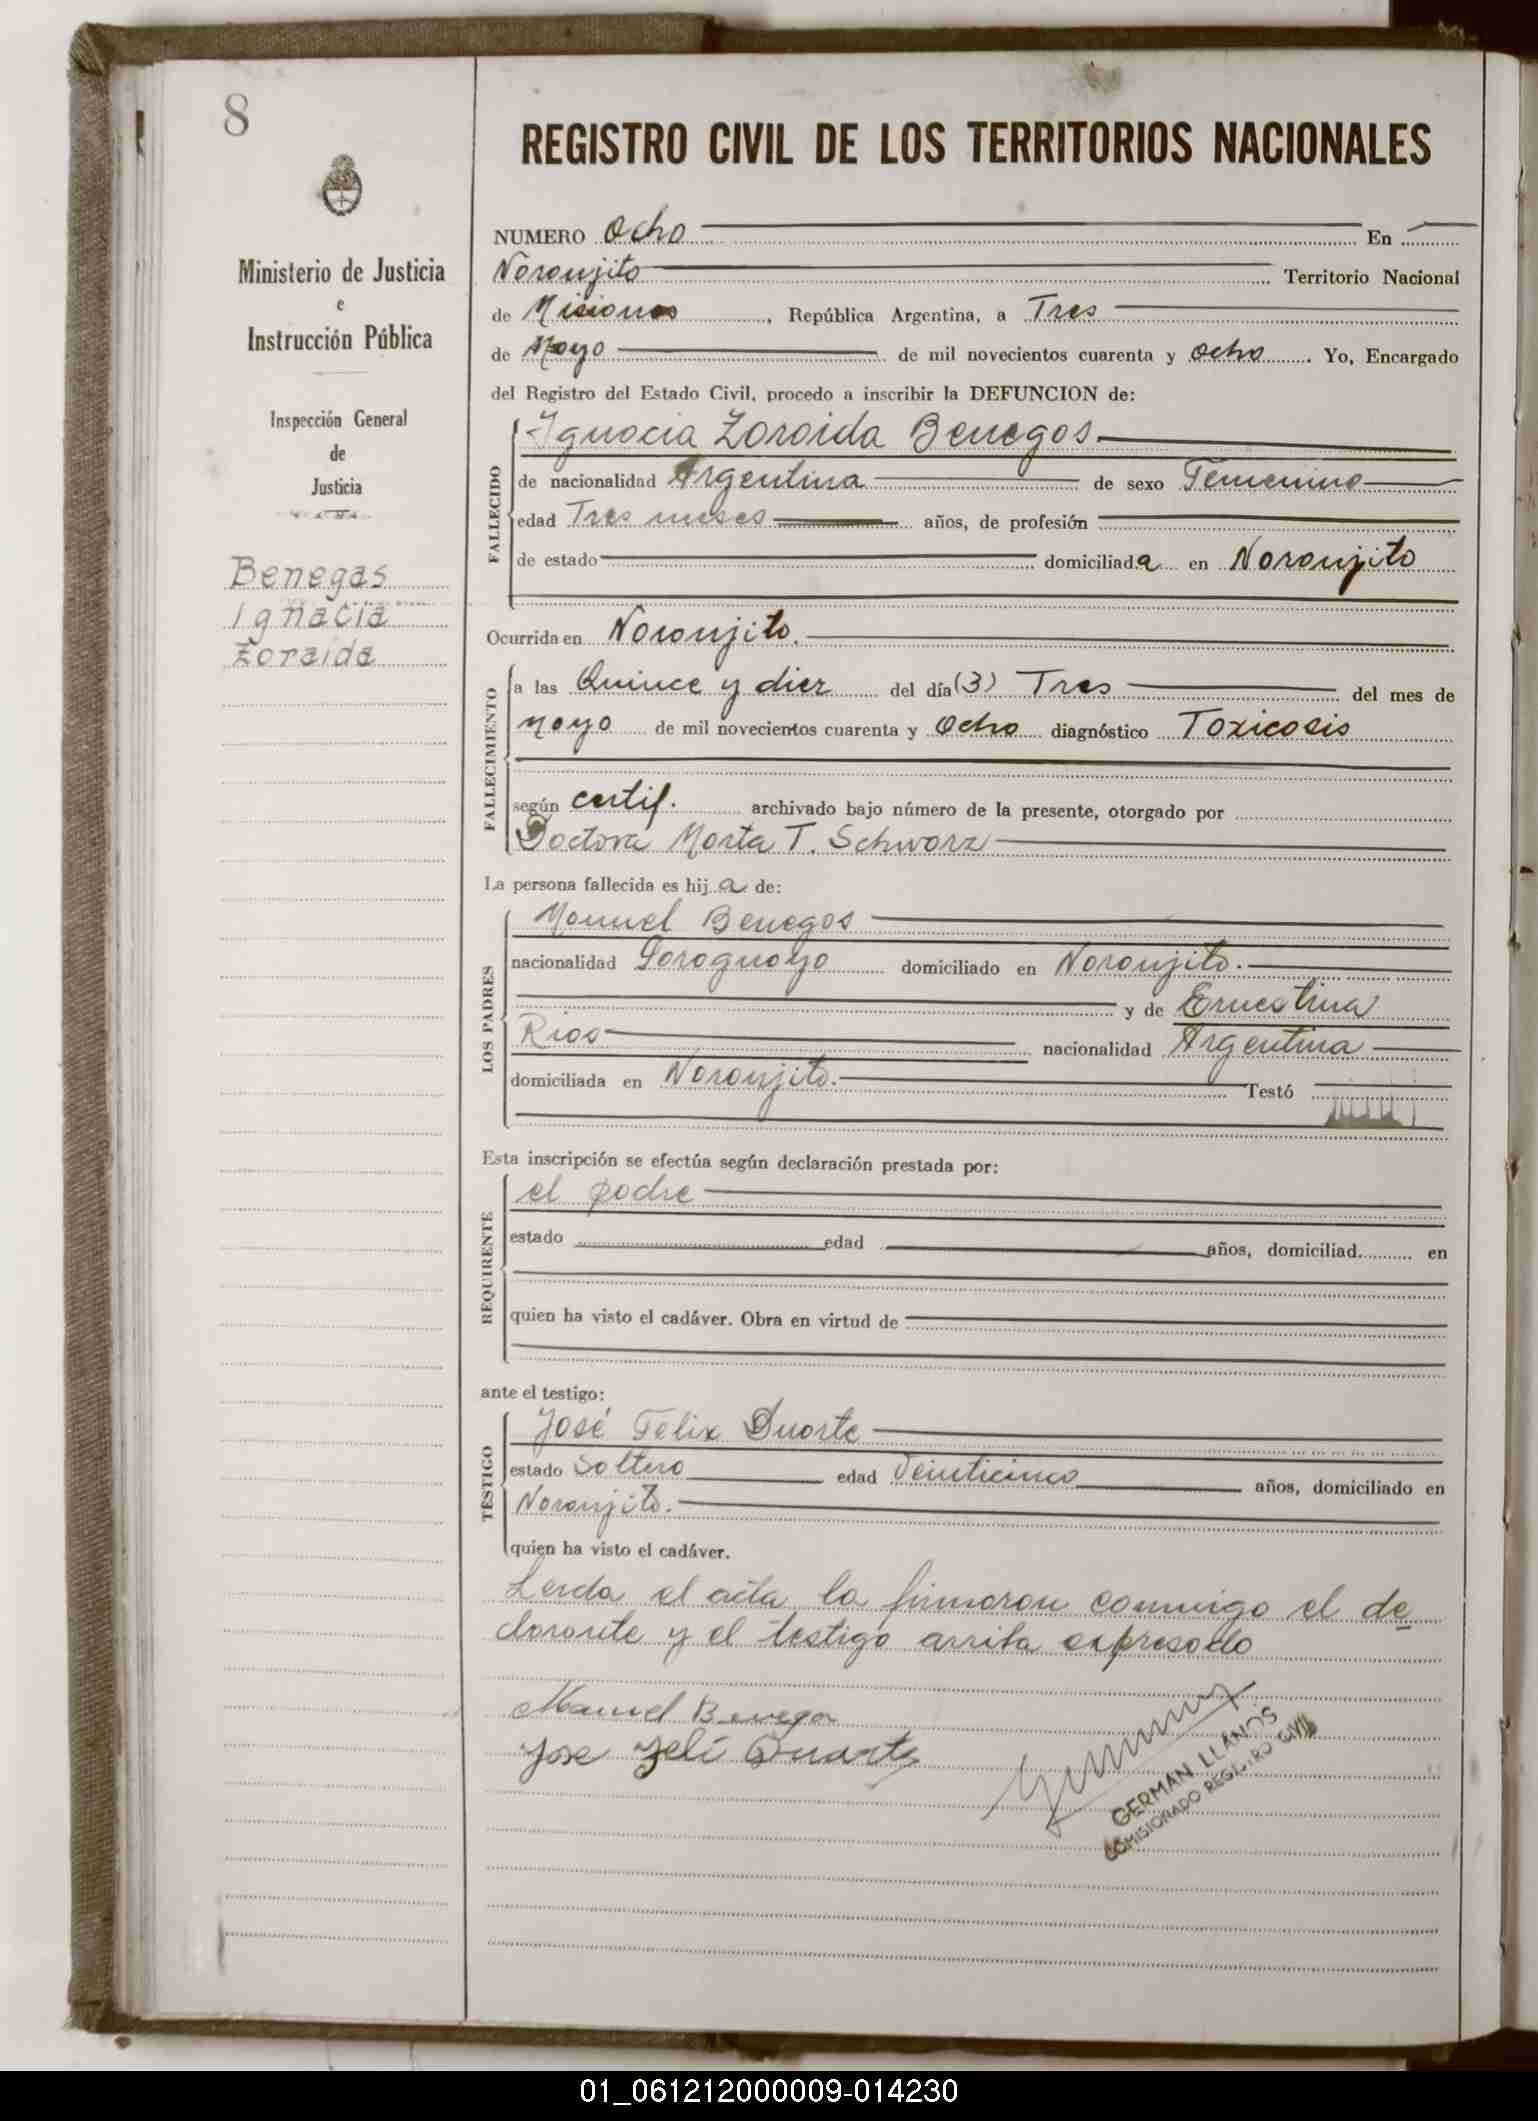 8
Ministerio de Justicia
e
Instrucción Pública
Inspección General
de
Justicia
Benegas
Ignacia
Zoraida
REGISTRO CIVIL DE LOS TERRITORIOS NACIONALES
NUMERO Ocho En
Naranjito Territorio Nacional
de Misiones, República Argentina, a Tres
de Mayo de mil novecientos cuarenta y ocho. Yo, Encargado
del Registro del Estado Civil, procedo a inscribir la DEFUNCION de:
FALLECIDO
Ignacia Zoraida Benegas
de nacionalidad Argentina de sexo Femenino
edad Tres meses años, de profesión
de estado domiciliada en Naranjito
Ocurrida en Naranjito.
FALLECIMIENTO
a las Quince y diez del día (3) Tres del mes de
Mayo de mil novecientos cuarenta y Ocho diagnóstico Toxicosis
según certif. archivado bajo número de la presente, otorgado por
Doctora Marta T. Schwarz
La persona fallecida es hija de:
LOS PADRES
Manuel Benegas
nacionalidad Paraguayo domiciliado en Naranjito.
y de Ernestina
Rios nacionalidad Argentina
domiciliada en Naranjito. Testó
Esta inscripción se efectúa según declaración prestada por:
REQUIRENTE
el padre
estado edad años, domiciliad en
quien ha visto el cadáver. Obra en virtud de
ante el testigo:
TESTIGO
José Felix Duarte
estado Soltero edad Veinticinco años, domiciliado en
Naranjito.
quien ha visto el cadáver.
Leida el acta la firmaron conmigo el de
clarante y el testigo arriba expresado
Manuel Benega
Jose Feli Duarte
GERMAN LLANOS
COMISIONADO REGISTRO CIVIL
01_061212000009-014230